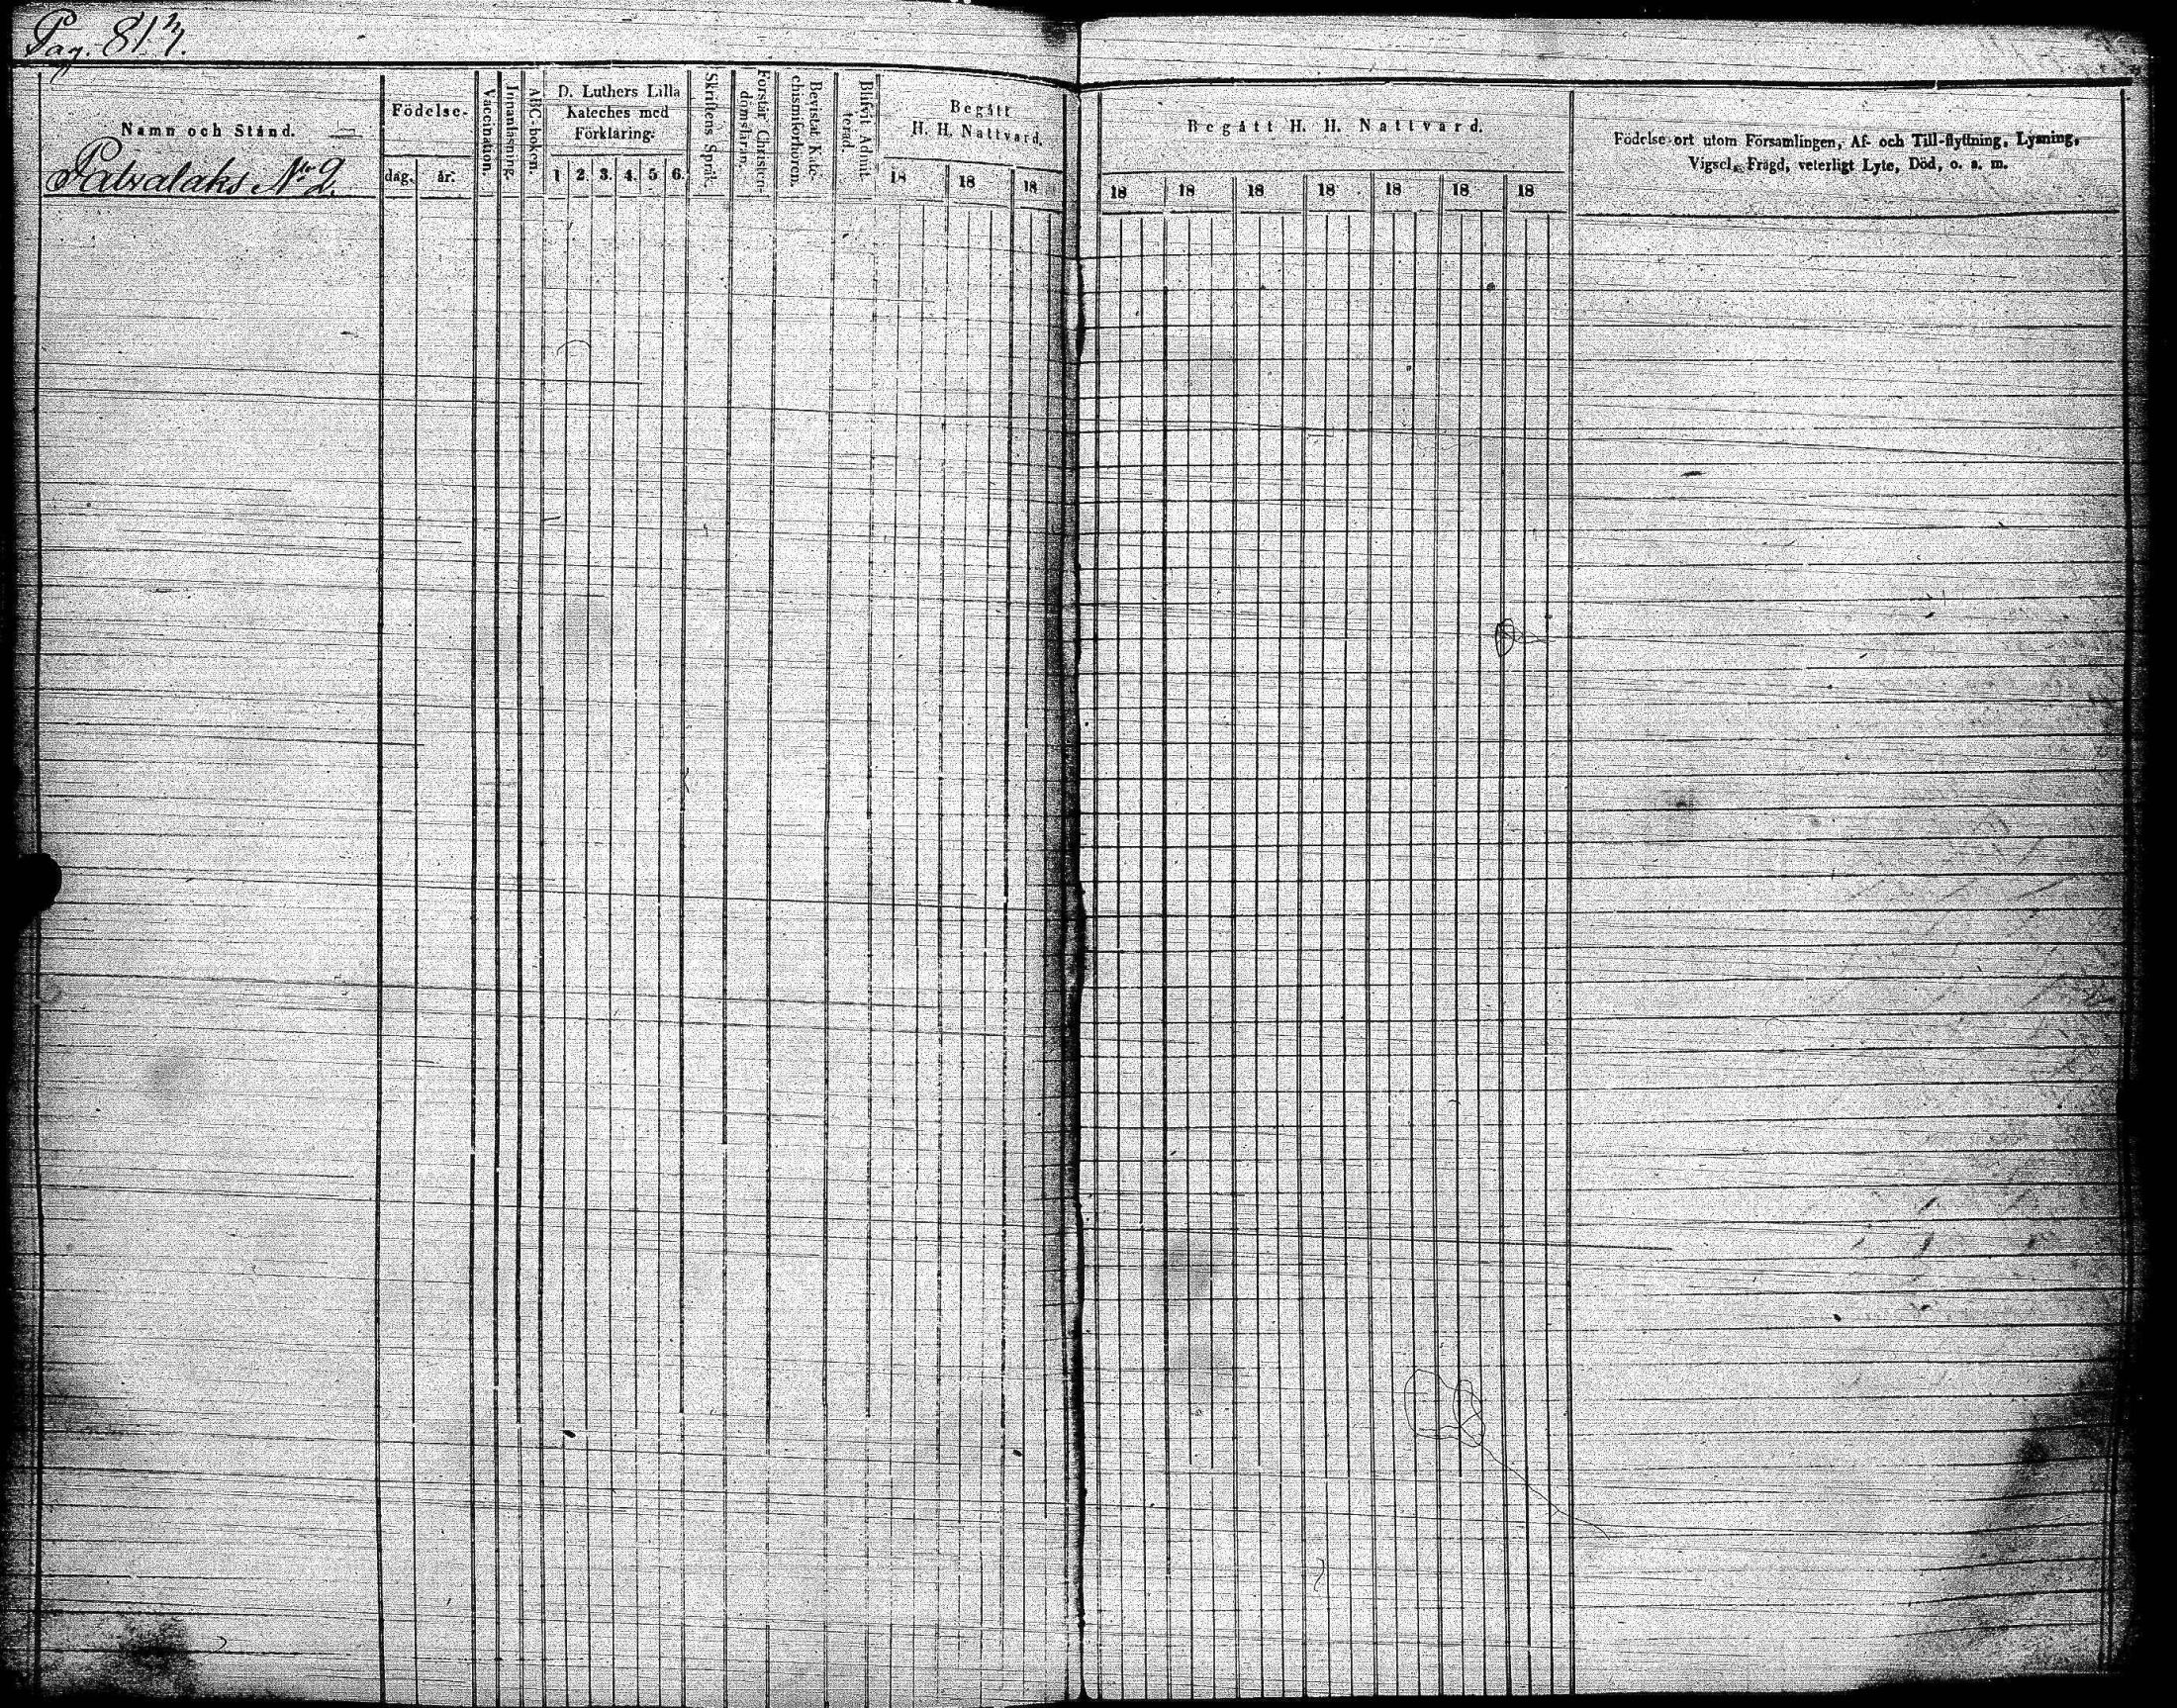 Pag. 813.
Namn och Stånd.
Patvalaks No 2.
Födelse-
dag. år.
Vaccination.
Innanläsning.
ABC-boken.
D. Luthers Lilla
Kateches med
Förklaring:
1 2. 3. 4. 5 6.
Skriftens Språk.
Förstår Christen-
domslärin.
Bevistat Kate-
chismiförhören.
Blifvit Admit-
terad.
Begått
H. H. Nattvard.
18 18 18
Begått H. H. Nattvard.
18 18 18 18 18 18 18
Födelse-ort utom Församlingen, Af- och Till-flyttning, Lysning,
Vigsel, Frägd, veterligt Lyte, Död, o. s. m.